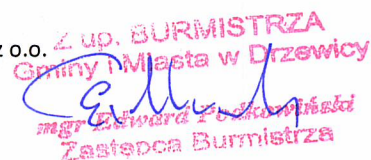 z o.o.
Z up. BURMISTRZA
Gminy i Miasta w Drzewicy
mgr Edward Podkowiński
Zastępca Burmistrza